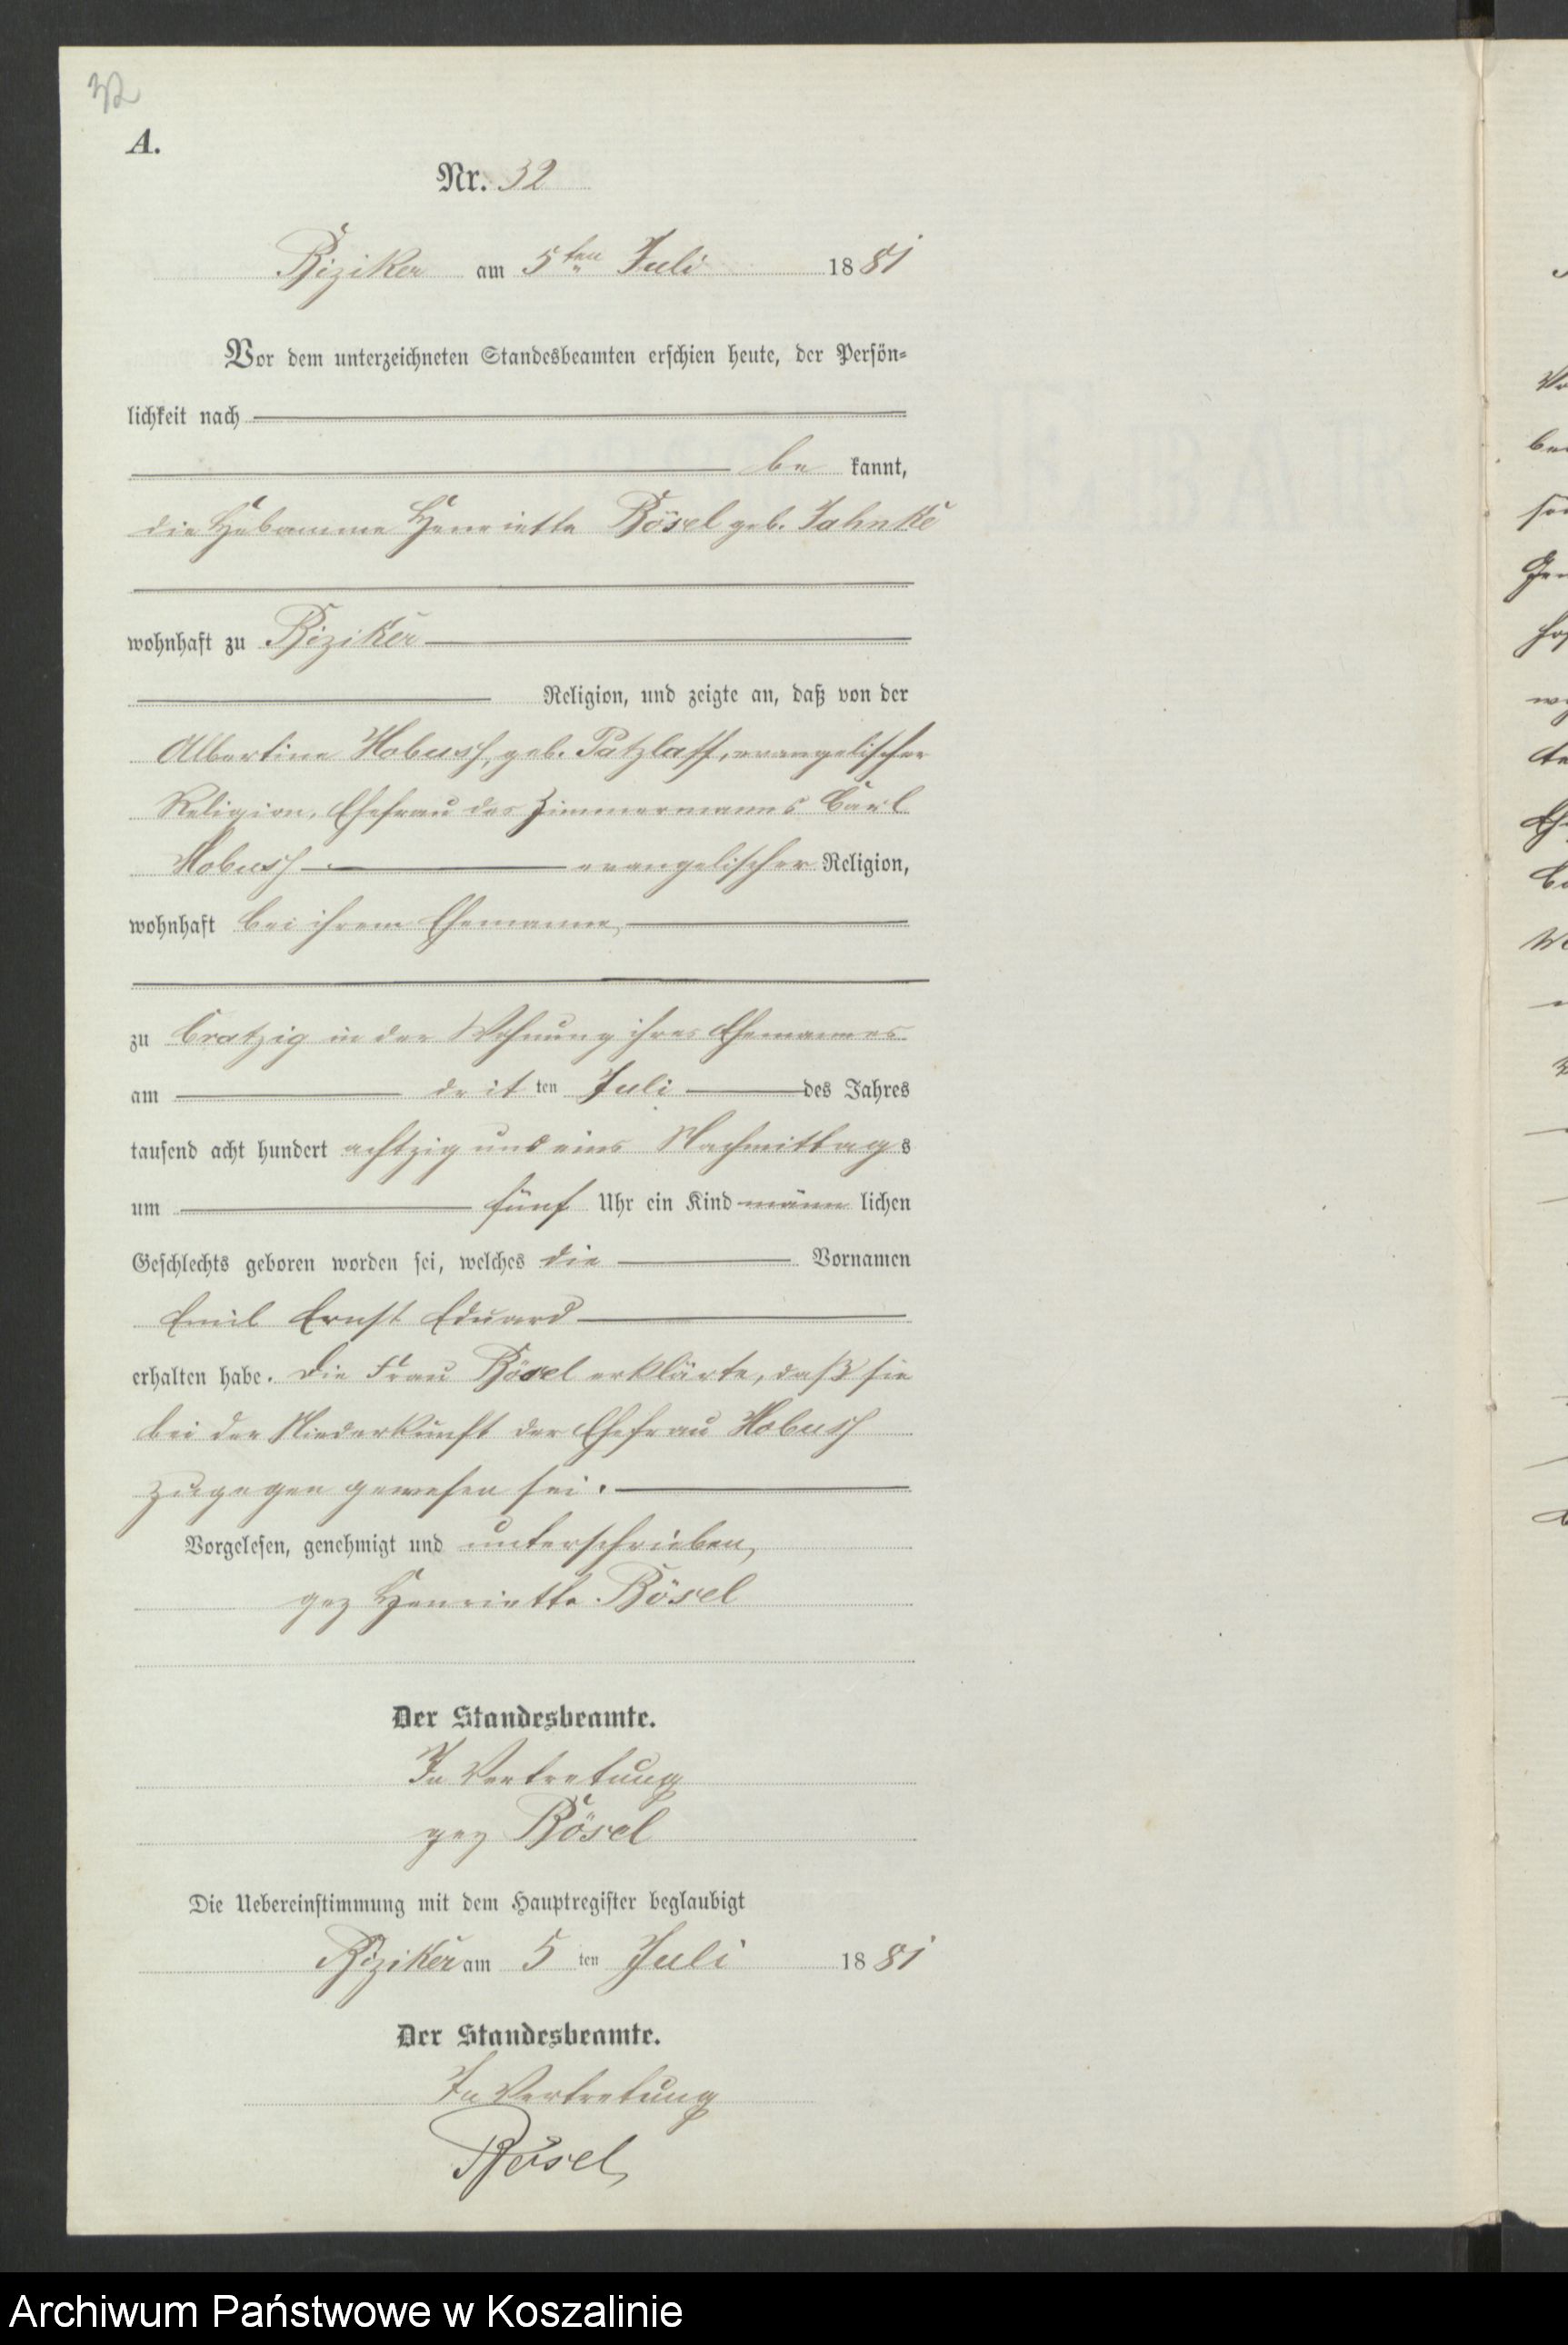 32
A.
Nr. 32
Biziker am 5ten Juli 1881
Vor dem unterzeichneten Standesbeamten erschien heute, der Persön=
lichkeit nach
be kannt,
die Hebamme Henriette Bösel geb. Jahnke
wohnhaft zu Biziker
Religion, und zeigte an, daß von der
Albertine Habusch, geb. Patzlaff, evangelischer
Religion, Ehefrau des Zimmermanns Carl
Habusch evangelischer Religion,
wohnhaft bei ihrem Ehemanne,
zu Cratzig in der Wohnung ihres Ehemannes
am drit ten Juli des Jahres
tausend acht hundert achtzig und eins Nachmittag s
um fünf Uhr ein Kind männ lichen
Geschlechts geboren worden sei, welches die Vornamen
Emil Ernst Eduard
erhalten habe. Die Frau Bösel erklärte, daß sie
bei der Niederkunft der Ehefrau Habusch
zugegen gewesen sei.
Vorgelesen, genehmigt und unterschrieben,
gez Henriette Bösel
Der Standesbeamte.
In Vertretung
gez Bösel
Die Uebereinstimmung mit dem Hauptregister beglaubigt
Biziker am 5 ten Juli 1881
Der Standesbeamte.
In Vertretung
Bösel
Archiwum Państwowe w Koszalinie